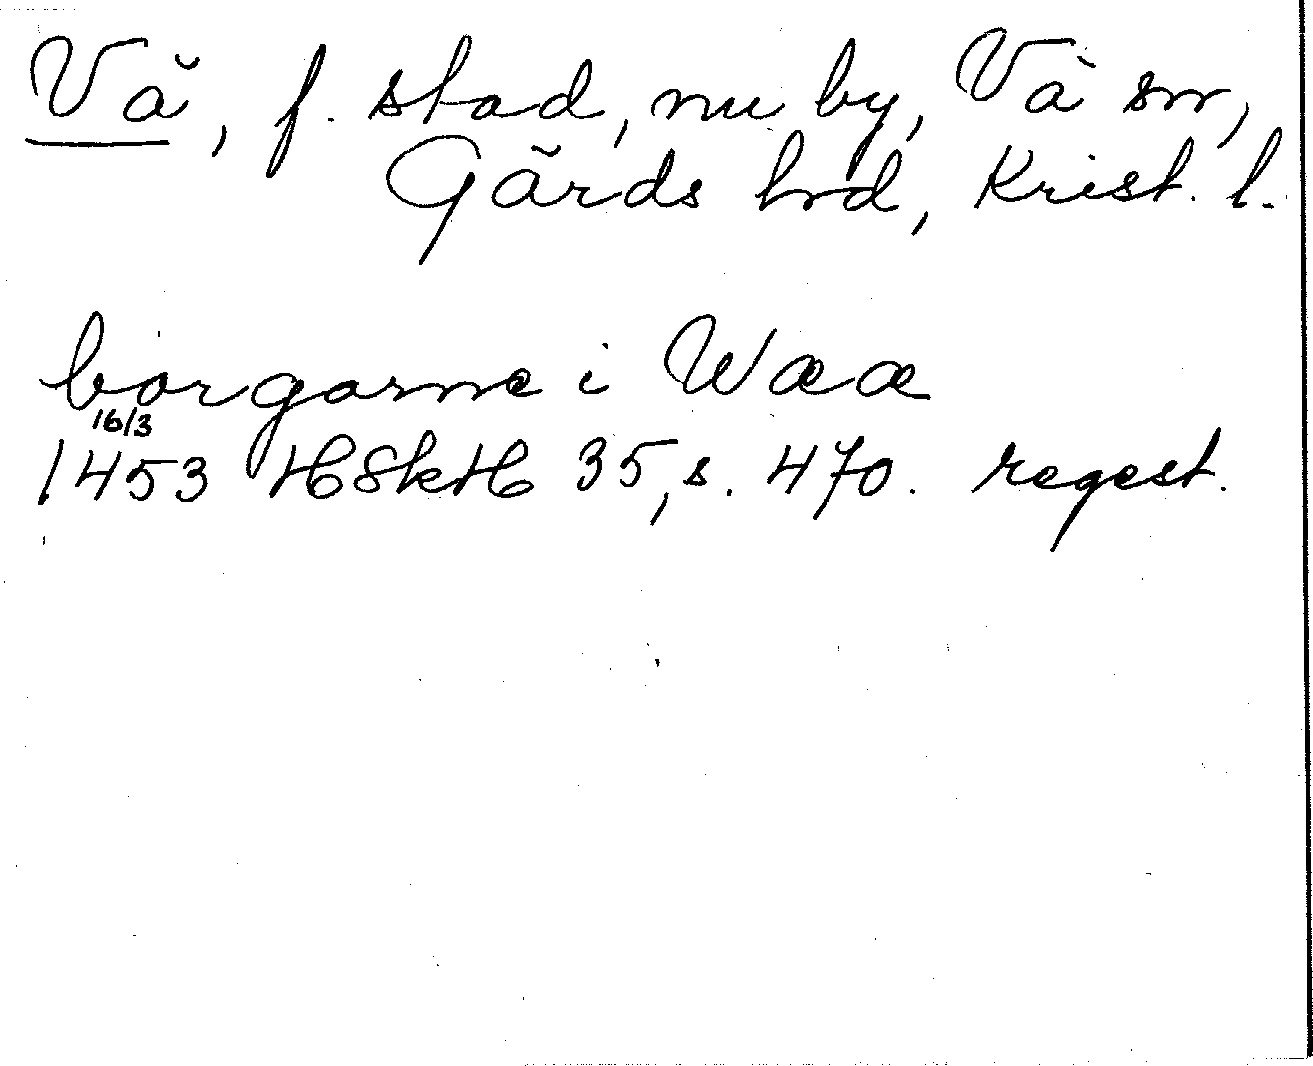 Vä, f. stad, nu by, Vä sn,
Gärds hrd, Krist. l.
borgarne i Wææ
16/3
1453 HSkH 35, s. 470. regest.